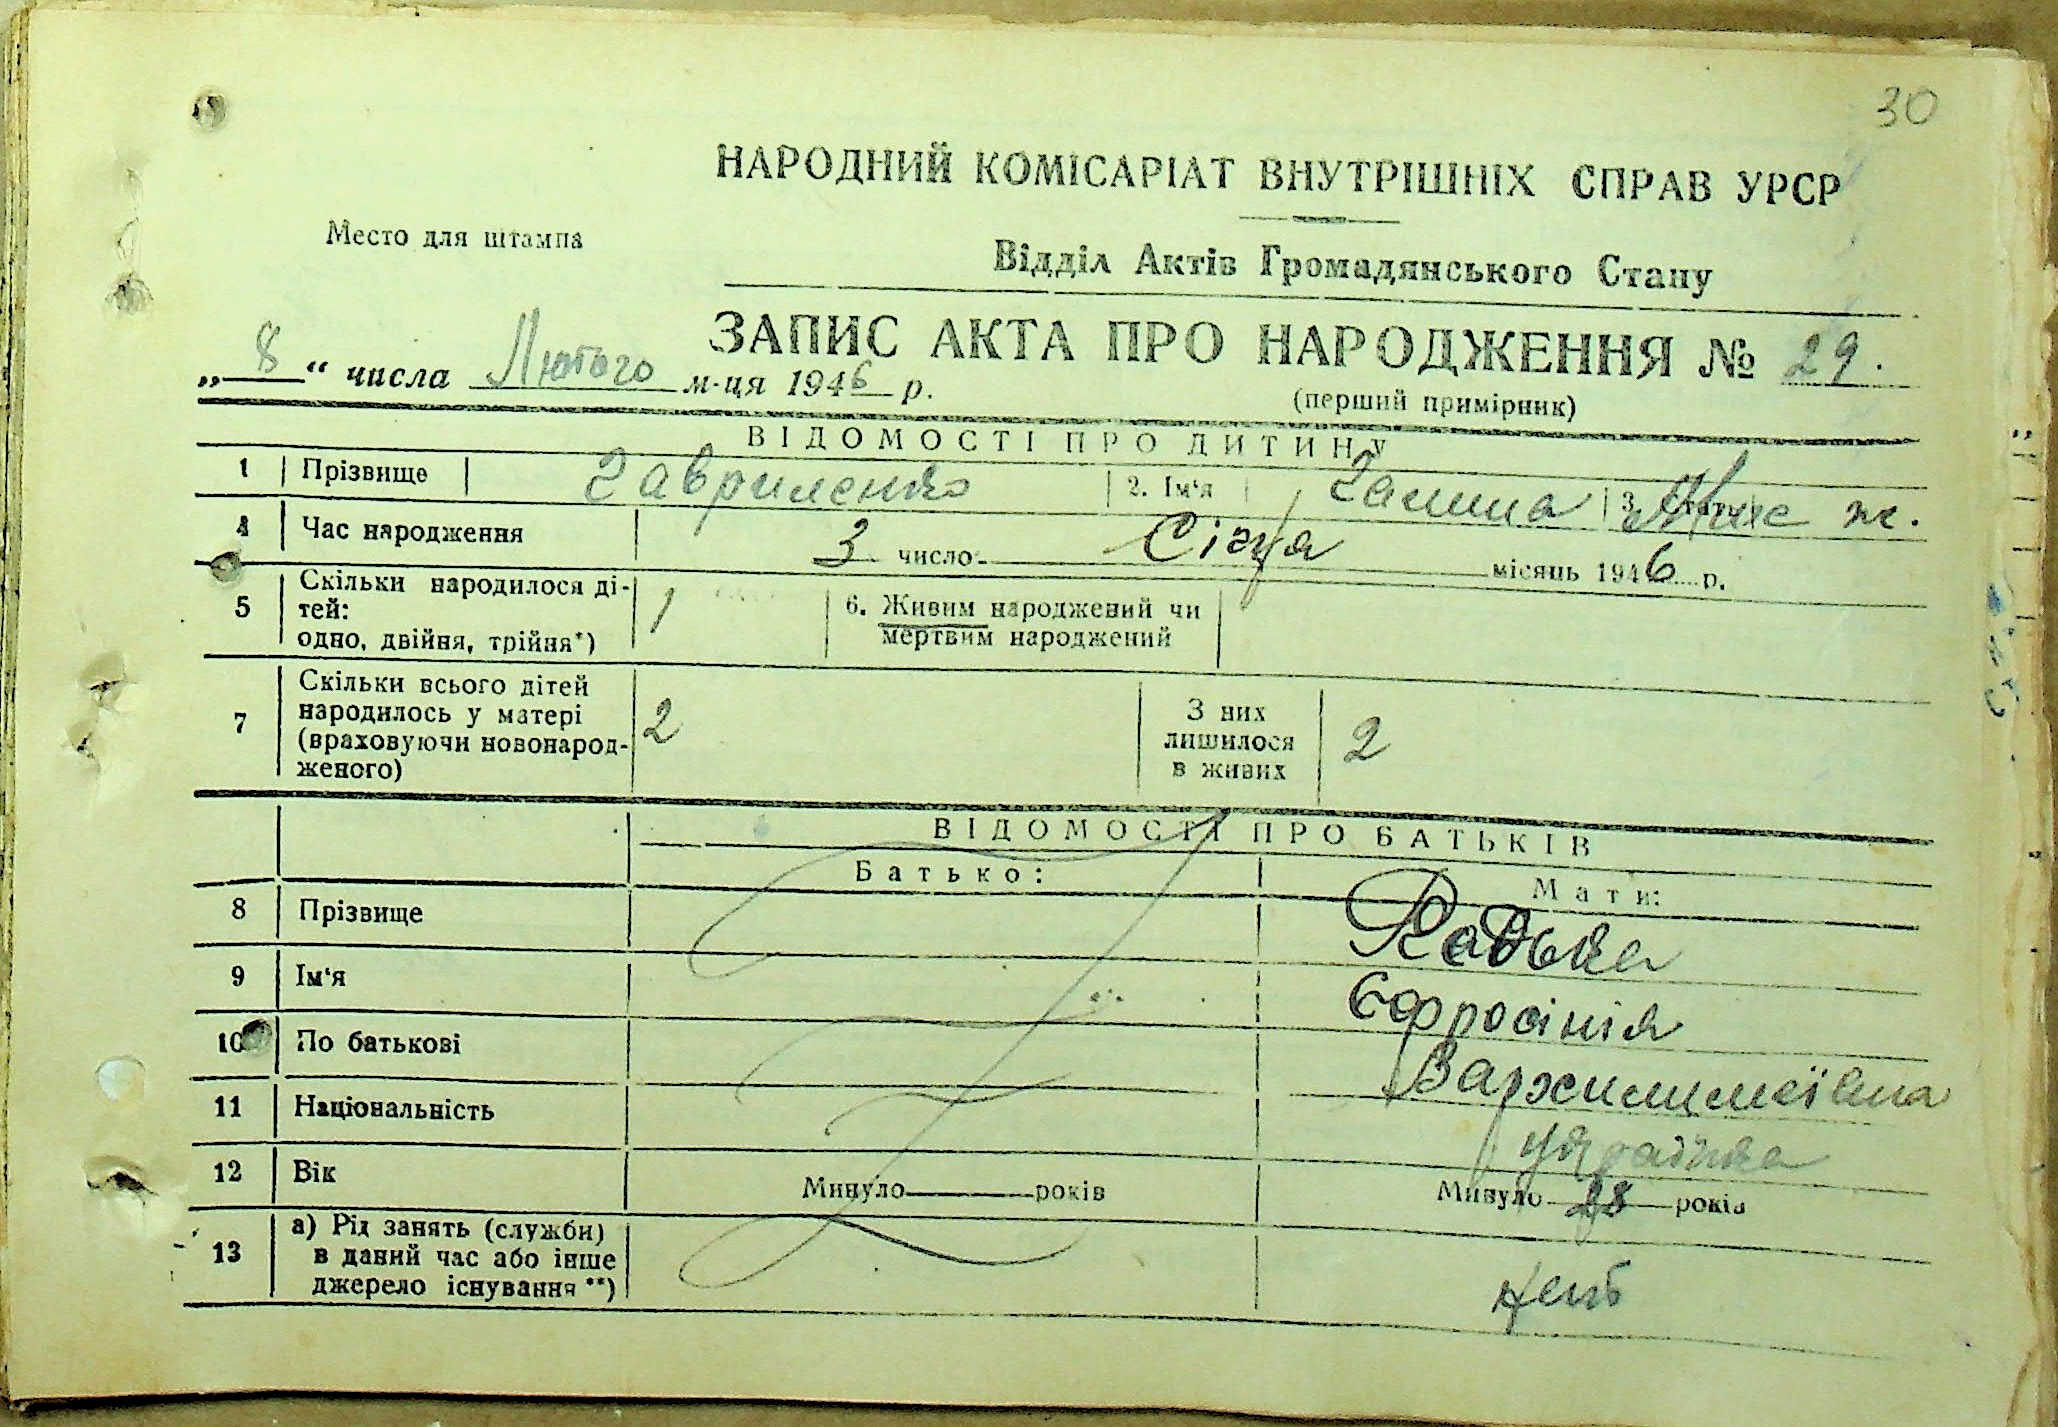 30
НАРОДНИЙ КОМІСАРІАТ ВНУТРІШНІХ СПРАВ УРСР
Место для штампа
Відділ Актів Громадянського Стану
ЗАПИС АКТА ПРО НАРОДЖЕННЯ № 29.
„ 8 “ числа Лютого м-ця 1946 р.
(перший примірник)
ВІДОМОСТІ ПРО ДИТИНУ
1 Прізвище Гавриленко 2. Ім‘я Галина 3. Стать ж.
4 Час народження 3 число Січня місяць 1946 р.
5 Скільки народилося ді-
тей:
одно, двійня, трійня*) 1
6. Живим народжений чи
мертвим народжений
7 Скільки всього дітей
народилось у матері
(враховуючи новонарод-
женого) 2
З них
лишилося
в живих 2
ВІДОМОСТІ ПРО БАТЬКІВ
Батько: Мати:
8 Прізвище Редька
9 Ім‘я Єфросінія
10 По батькові
11 Національність українка
12 Вік Минуло років Минуло 28 років
13 а) Рід занять (служби)
в даний час або інше
джерело існування **)